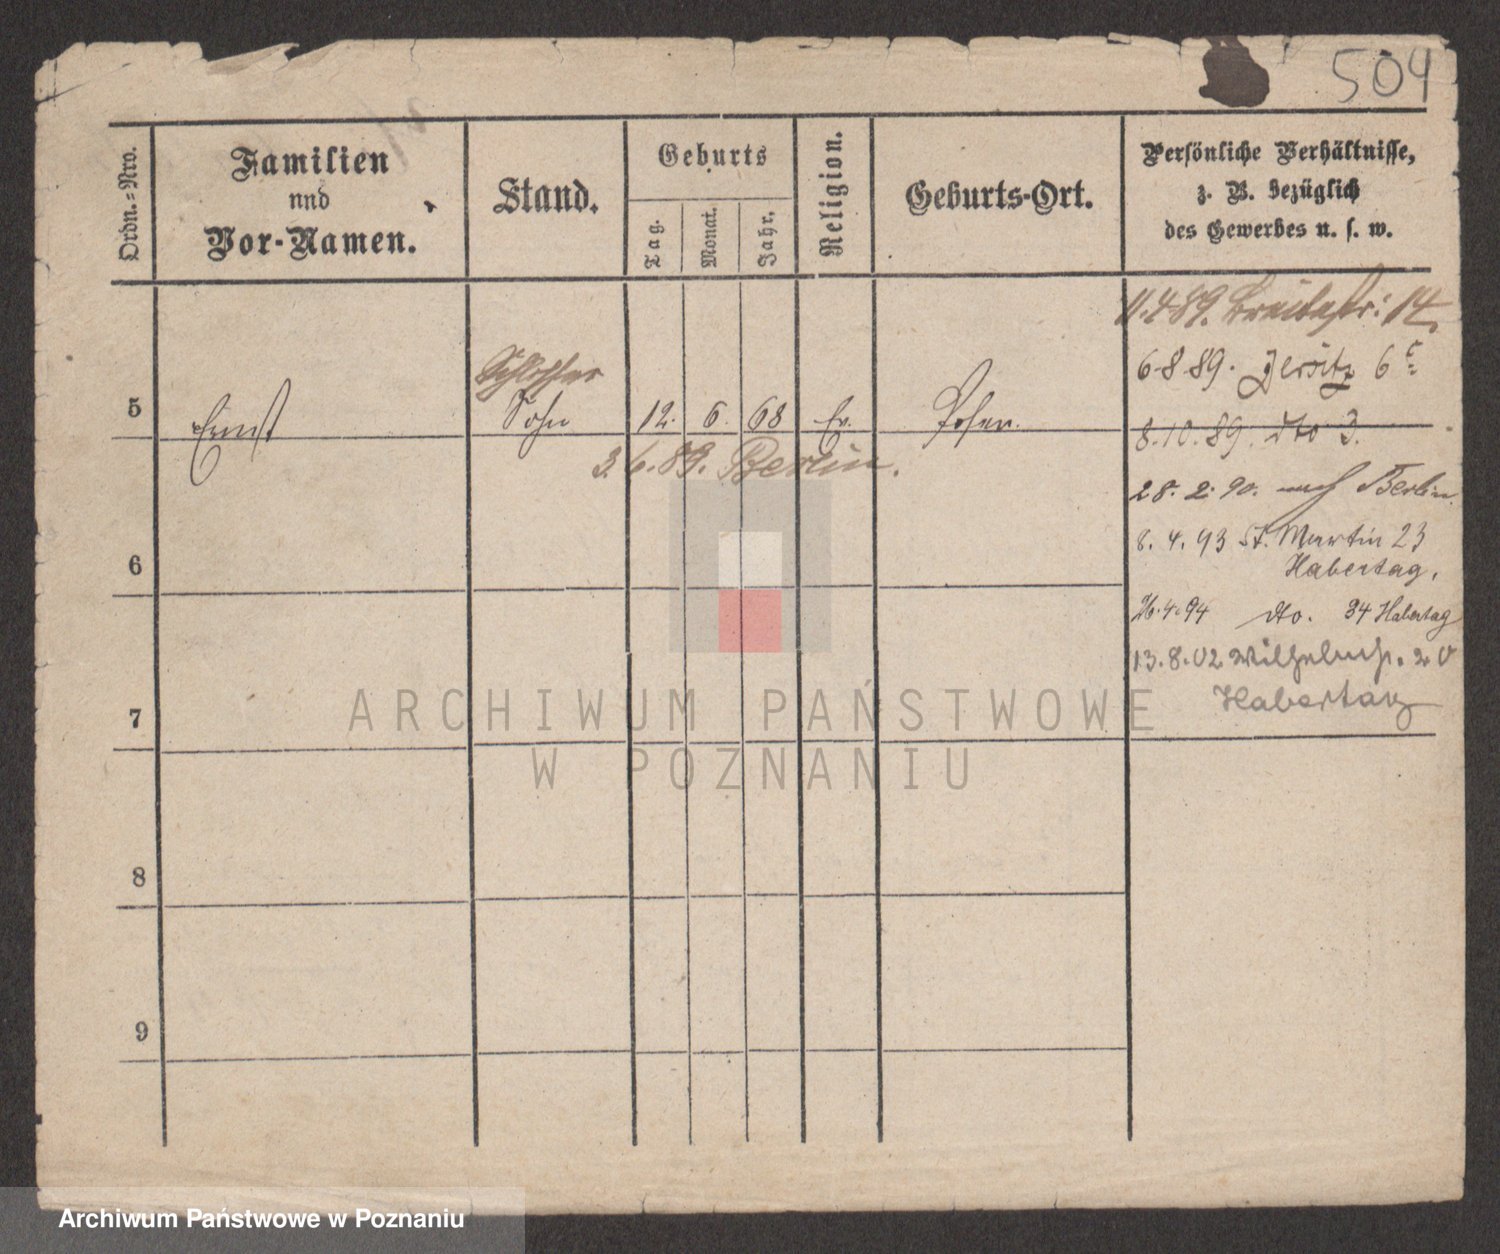 504
Ordn.=Nro.
Familien
und
Vor-Namen.
Stand.
Geburts
Tag.
Monat.
Jahr.
Religion.
Geburts-Ort.
Persönliche Verhältnisse,
z. B. bezüglich
des Gewerbes u. s. w.
11.4 89. Breitestr: 14.
6-8 89. Jersitz 6c
Schlosser
5 Ernst Sohn 12. 6. 68 Ev. Posen.
8.10.89. dto 3.
3.6.89. Berlin.
28. 2. 90. nach Berlin.
8. 4. 93 St. Martin 23
Habertag.
6
26.4.94 dto. 34 Habertag
13.8.02 Wilhelmspl. 20
Habertag
7
8
9
ARCHIWUM PAŃSTWOWE
W POZNANIU
Archiwum Państwowe w Poznaniu